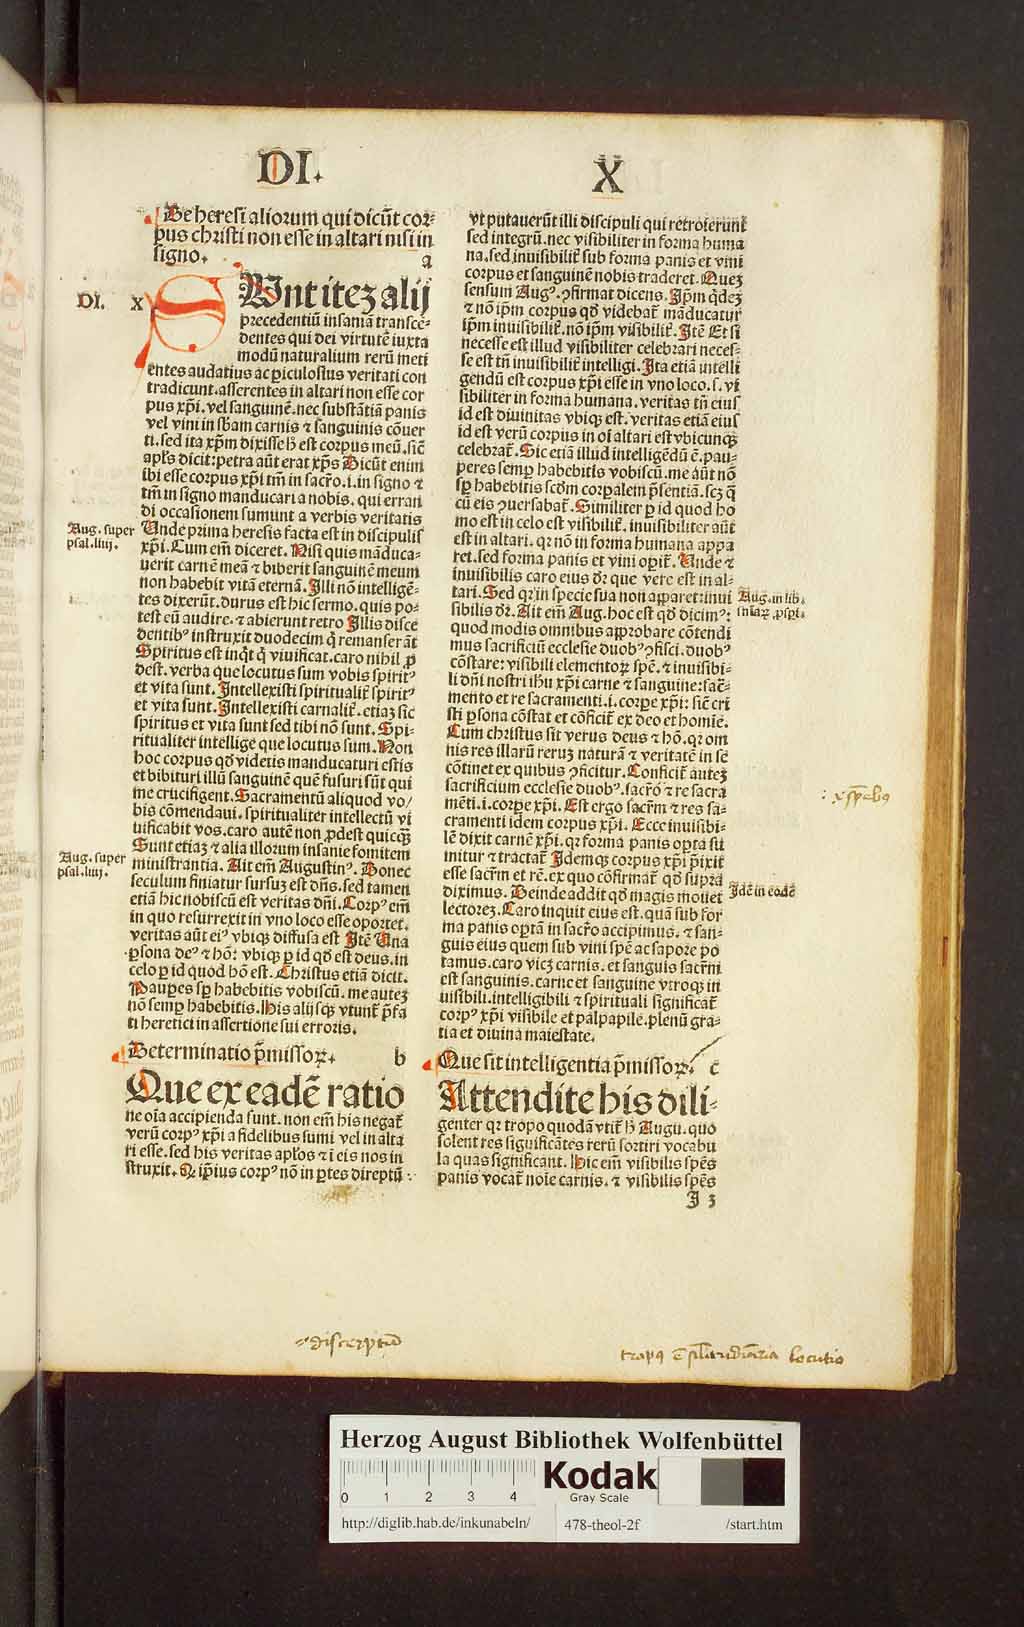 DI.
X
De heresi aliorum qui dicūt cor⸗
pus christi non esse in altari nisi in
signo.
a
DI. x
SUnt iteʒ alij
precedentiū insaniā transcē⸗
dentes qui dei virtutē iuxta
modū naturalium rerū meti
entes audatius ac ꝑiculostus veritati con
tradicunt. asserentes in altari non esse cor
pus xp̄i. vel sanguinē. nec substātiā panis
vel vini in sb̄am carnis ⁊ sanguinis cōuer
ti. sed ita xp̄m dixisse h̄ est corpus meū. sic̄
apl̄s dicit: petra aūt erat xp̄s Dicūt enim
ibi esse corpus xp̄i tm̄ in sacr̄o. i. in signo ⁊
tm̄ in signo manducari a nobis. qui erran
di occasionem sumunt a verbis veritatis
Aug. super
psal. liiij.
Unde prima heresis facta est in discipulis
xp̄i. Cum em̄ diceret. Nisi quis māduca⸗
uerit carnē meā ⁊ biberit sanguinē meum
non habebit vitā eternā. Illi nō intelligē⸗
tes dixerūt. durus est hic sermo. quis po⸗
test eū audire. ⁊ abierunt retro Illis disce
dentibꝰ instruxit duodecim q̄ remanserāt
Spiritus est inq̇t q̇ viuificat. caro nihil ꝓ
dest. verba que locutus sum vobis spiritꝰ
et vita sunt. Intellexisti spiritualit̄ spiritꝰ
et vita sunt. Intellexisti carnalit̄. etiaʒ sic
spiritus et vita sunt sed tibi nō sunt. Spi⸗
ritualiter intellige que locutus sum. Non
hoc corpus qd̄ videtis manducaturi estis
et bibituri illū sanguinē quē fusuri sūt qui
me crucifigent. Sacramentū aliquod vo/
bis cōmendaui. spiritualiter intellectū vi
uificabit vos. caro autē non ꝓdest quicq̄ʒ
Sunt etiaʒ ⁊ alia illorum insanie fomitem
Aug. super
psal. liiij.
ministrantia. Ait em̄ Augustinꝰ. Donec
seculum finiatur sursuʒ est dn̄s. sed tamen
etiā hic nobiscū est veritas dn̄i. Corpꝰ em̄
in quo resurrexit in vno loco esse oportet.
veritas aūt eiꝰ vbiqʒ diffusa est Itē Una
ꝑsona deꝰ ⁊ hō: vbiqʒ ꝑ id qd̄ est deus. in
celo ꝑ id quod hō est. Christus etiā dicit.
Pauꝑes sꝑ habebitis vobiscū. me auteʒ
nō semꝑ habebitis. His alijsqʒ vtunt̄ p̄fa
ti heretici in assertione sui erroris.
Determinatio p̄missoꝝ.
b
Que ex eadē ratio
ne oīa accipienda sunt. non em̄ his negat̄
verū corpꝰ xp̄i a fidelibus sumi vel in alta
ri esse. sed his veritas apl̄os ⁊ ī eis nos in
struxit. Q̇ ip̄ius corpꝰ nō in ꝑtes direptū
vt putauerūt illi discipuli qui retroierunt
sed integrū. nec visibiliter in forma huma
na. sed inuisibilit̄ sub forma panis et vini
corpus et sanguinē nobis traderet. Queʒ
sensum Augꝰ. ꝯfirmat dicens. Ip̄m q̇deʒ
⁊ nō ip̄m corpus qd̄ videbat̄ māducatur
ip̄m inuisibilit̄. nō ip̄m visibilit̄. Itē Et si
necesse est illud visibiliter celebrari neces⸗
se est tn̄ inuisibilit̄ intelligi. Ita etiā intelli
gendū est corpus xp̄i esse in vno loco. s. vi
sibiliter in forma humana. veritas tn̄ eius
id est diuinitas vbiqʒ est. veritas etiā eius
id est verū corpus in oī altari est vbicunqʒ
celebrat̄. Sic etiā illud intelligēdū ē. pau⸗
peres semꝑ habebitis vobiscū. me aūt nō
sꝑ habebitis scd̄m corꝑalem p̄sentiā. scʒ q̄
cū eis ꝯuersabat̄. Similiter ꝑ id quod ho
mo est in celo est visibilit̄. inuisibiliter aūt
est in altari. qꝛ nō in forma humana appa
ret. sed forma panis et vini oꝑit̄. Unde ⁊
inuisibilis caro eius dꝛ̄ que vere est in al⸗
tari. Sed qꝛ in specie sua non apparet: inui
Aug. in lib.
sibilis dꝛ̄. Ait em̄ Aug. hoc est qd̄ dicimꝰ:
sniaꝝ .pspi.
quod modis omnibus approbare cōtendi
mus sacrificiū ecclesie duobꝰ ꝯfici. duobꝰ
cōstare: visibili elementoꝝ spē. ⁊ inuisibi⸗
li dn̄i nostri ihū xp̄i carne ⁊ sanguine: sac̄⸗
mento et re sacramenti. i. corꝑe xp̄i: sic̄ cri
sti ꝑsona cōstat et cōficit̄ ex deo et homīe.
Cum christus sit verus deus ⁊ hō. qꝛ om
nis res illarū reruʒ naturā ⁊ veritatē in se
cōtinet ex quibus ꝯficitur. Conficit̄ auteʒ
sacrificium ecclesie duobꝰ. sacr̄o ⁊ re sacra
: ⁊ sp̄ebꝰ
mēti. i. corꝑe xp̄i. Est ergo sacr̄m ⁊ res sa⸗
cramenti idem corpus xp̄i. Ecce inuisibi⸗
lē dixit carnē xp̄i. qꝛ forma panis oꝑta su
mitur ⁊ tractat̄ Idemqʒ corpus xp̄i p̄ixit
esse sacr̄m et rē. ex quo cōfirmat̄ qd̄ supra
Idē in eodē
diximus. Deinde addit qd̄ magis mouet
lectoreʒ. Caro inquit eius est. quā sub for
ma panis oꝑtā in sacr̄o accipimus. ⁊ san⸗
guis eius quem sub vini spē ac sapore po
tamus. caro viʒ carnis. et sanguis sacr̄m
est sanguinis. carne et sanguine vtroqʒ in
uisibili. intelligibili ⁊ spirituali significat̄
corpꝰ xp̄i visibile et palpapile. plenū gra⸗
tia et diuina maiestate.
Que sit intelligentia p̄missoꝝ.
c
Attendite his dili⸗
genter qꝛ tropo quodā vtit̄ h̄ Augu. quo
solent res significātes rerū sortiri vocabu
la quas significant. Hic em̄ visibilis sp̄es
panis vocat̄ noīe carnis. ⁊ visibilis sp̄es
I 3
discerptū
locutio
Herzog August Bibliothek Wolfenbüttel
0 1 2 3 4
Kodak
Gray Scale
http://diglib.hab.de/inkunabeln/ 478-theol-2f /start.htm